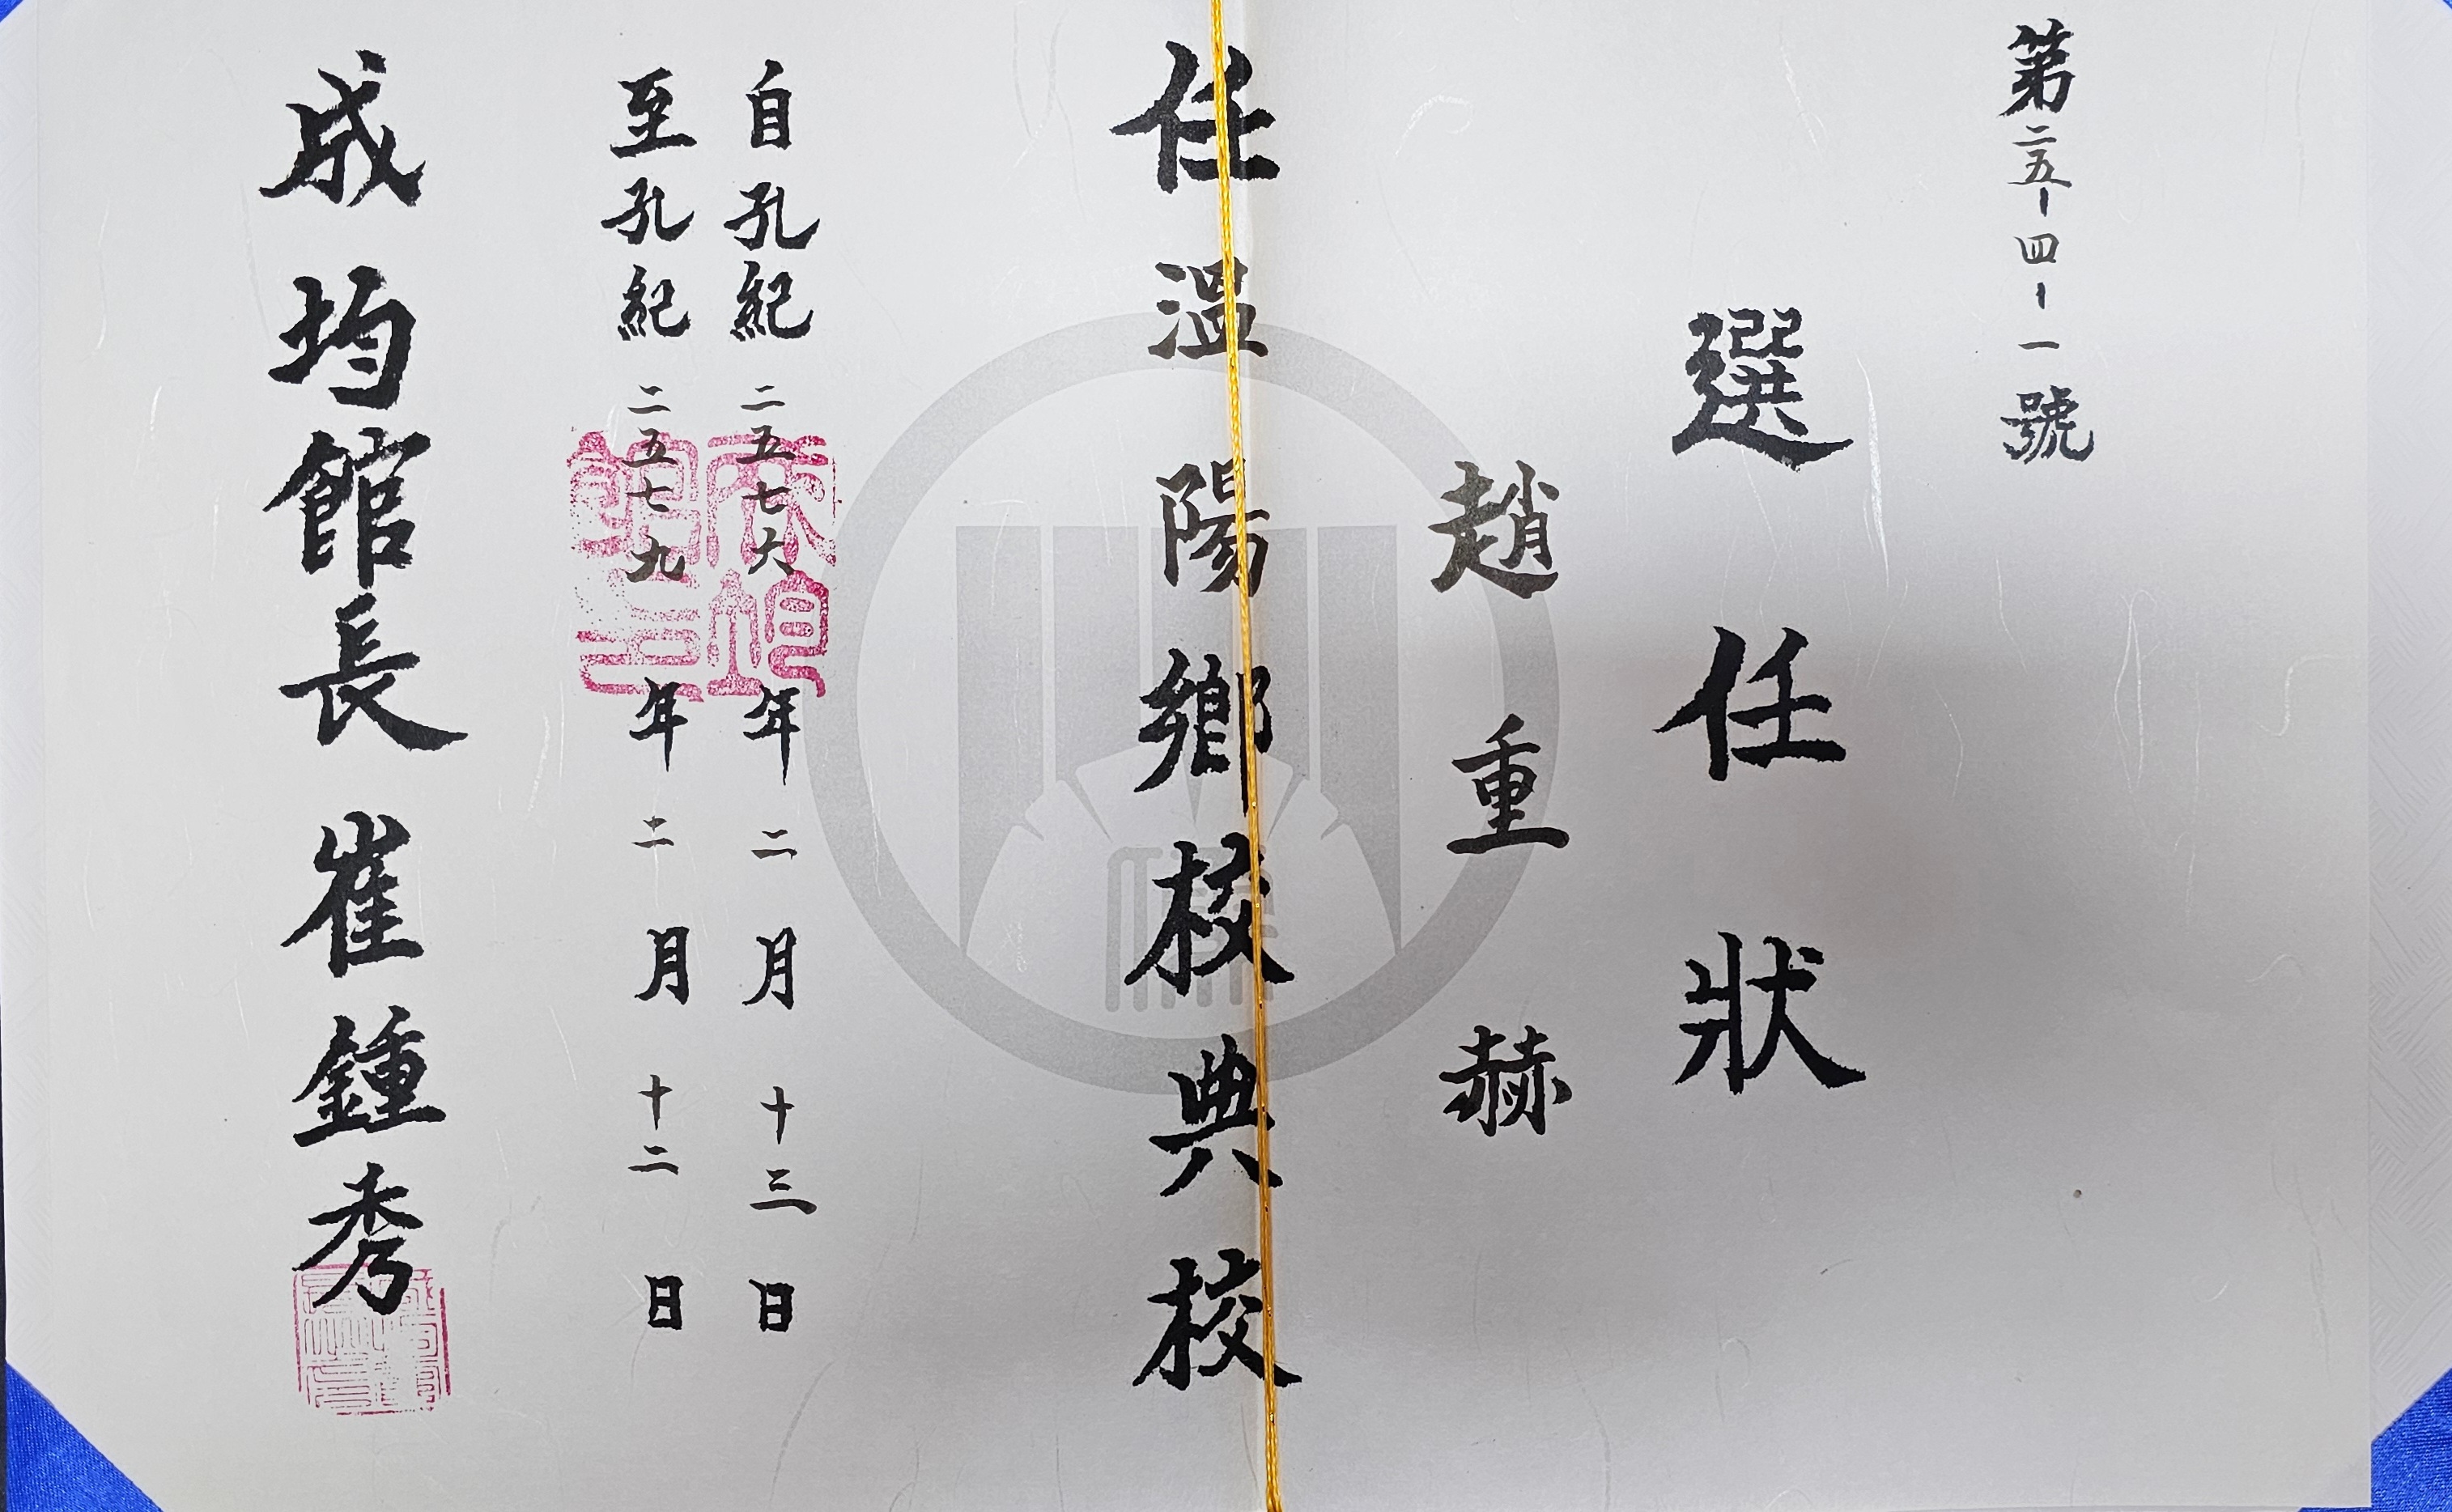 第二五-四-一號
選任狀
趙重赫
任溫陽鄉校典校
自孔紀二五七六年二月十三日
至孔紀二五七九年二月十二日
成均館長崔鍾秀